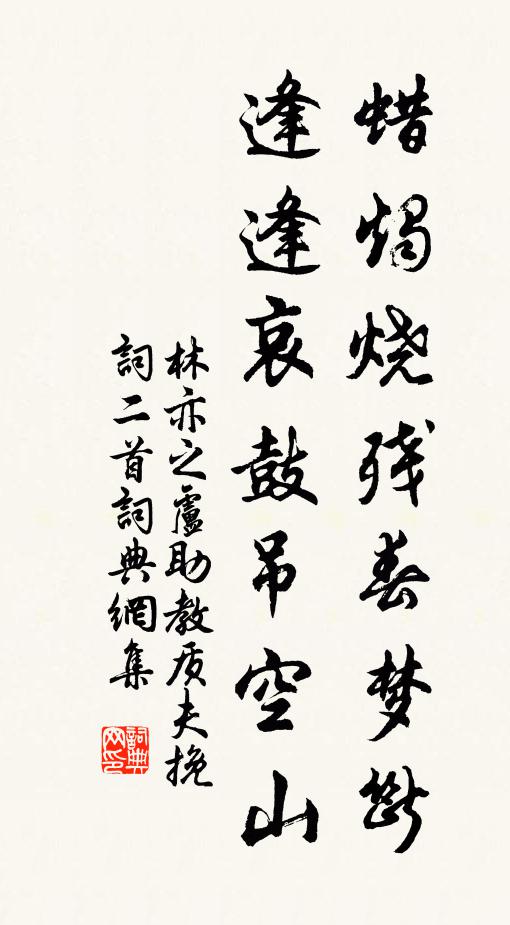 蜡烛烧残春梦断
逢逢哀鼓吊空山
林亦之盧助教质夫挽
詞二首詞典網集
詞典网印